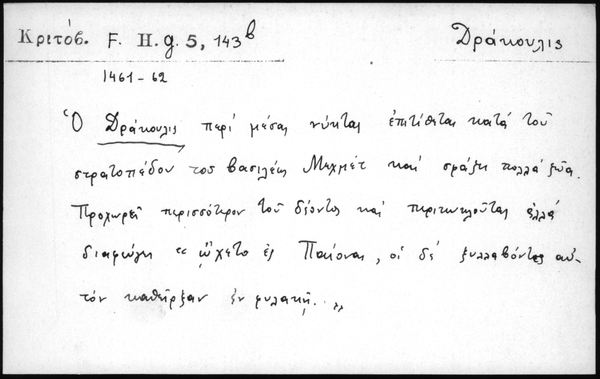 Κριτόβ. F. H. g. 5, 143 β Δράκουλις
1461-62
Ὁ Δράκουλις περί μέσας νύκτας ἐπιτίθεται κατά τοῦ
στρατοπέδου τοῦ βασιλέως Μεχμέτ καί σφάζει πολλά ζῶα.
Προχωρεῖ περισσότερον τοῦ δέοντος καί περικυκλοῦται ἀλλά
διαφεύγει " ᾤχετο ἐς Παίονας, οἱ δέ ξυλλαβόντες αὐ-
τόν καθεῖρξαν ἐν φυλακῇ. "